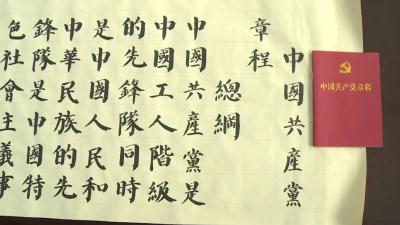 中国共产党章程
中國共產黨
章程
總綱
中國共產黨是
中國工人階級
的先鋒隊同時
是中國人民和
中華民族的先
鋒隊是中國特
色社會主義事